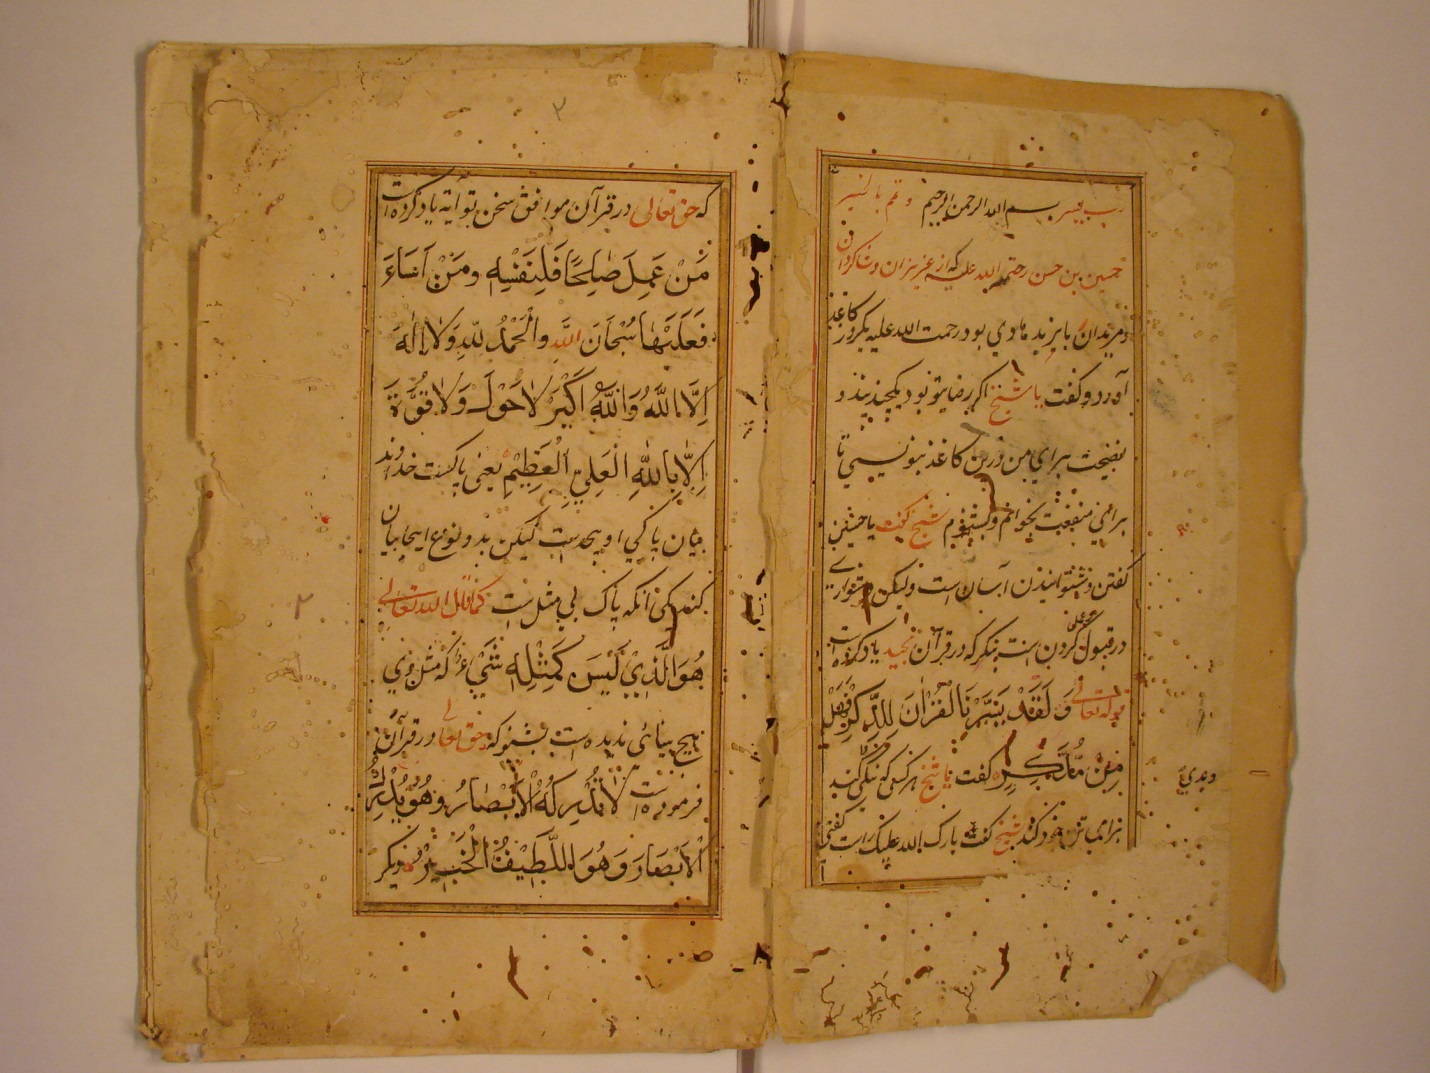 رب یسر بسم الله الرحمن الرحیم و تمم بالخیر
حسین بن حسن رحمة الله علیه که از عزیزان و شاکردان
و مریدان بایزید بود رحمت الله علیه یکروز کاغذ
آورد و کفت یا شیخ اکر رضای تو بود یکچند پند و
نصیحت برای من درین کاغذ بنویسی تا
برای منفعت بخوانم و بشنوم شیخ کفت یا حسین
کفتن و شنوانیدن آسان است ولیکن دشواری
در قبول کردن است بنکر که در قرآن مجید یاد کرده است
قوله تعالی وَلَقَدْ یَسَّرْنَا الْقُرْاٰنَ لِلذِّکْرِ فَهَلْ
مِنْ مُدَّکِرٍ کفت یا شیخ هر کسی که نیکی کند
برای تن خود کند شیخ کفت بارک الله علیک راست کفتی
و بدی
۲
که حق تعالی در قرآن موافق سخن تو آیة یاد کرده است
مَنْ عَمِلَ صَالِحًا فَلِنَفْسِهٖ وَمَنْ اَسَاءَ
فَعَلَیْهَا سُبْحَانَ اللَّهِ وَالْحَمْدُ لِلّٰهِ وَلَا اِلٰهَ
اِلَّا اللَّهُ وَاللَّهُ اَکْبَرْ لَا حَوْلَ وَلَا قُوَّةَ
اِلَّا بِاللّٰهِ الْعَلِيِّ الْعَظِیْمِ یعنی پاکست خداوند
بیان پاکی او بیحدست لیکن بدو نوع ایجا بیان
کنم یکی انکه پاک بی مثل ست کما قال الله تعالی
هُوَ الَّذِيْ لَیْسَ کَمِثْلِهٖ شَيْءٌ که مثل وی
هیچ بینائی ندیده است بشنو که حق تعالی در قرآن
فرموده است لَا تُدْرِکُهُ الْاَبْصَارُ وَهُوَ یُدْرِكُ
الْاَبْصَارَ وَهُوَ اللَّطِیْفُ الْخَبِیْرُ دیکر
۲